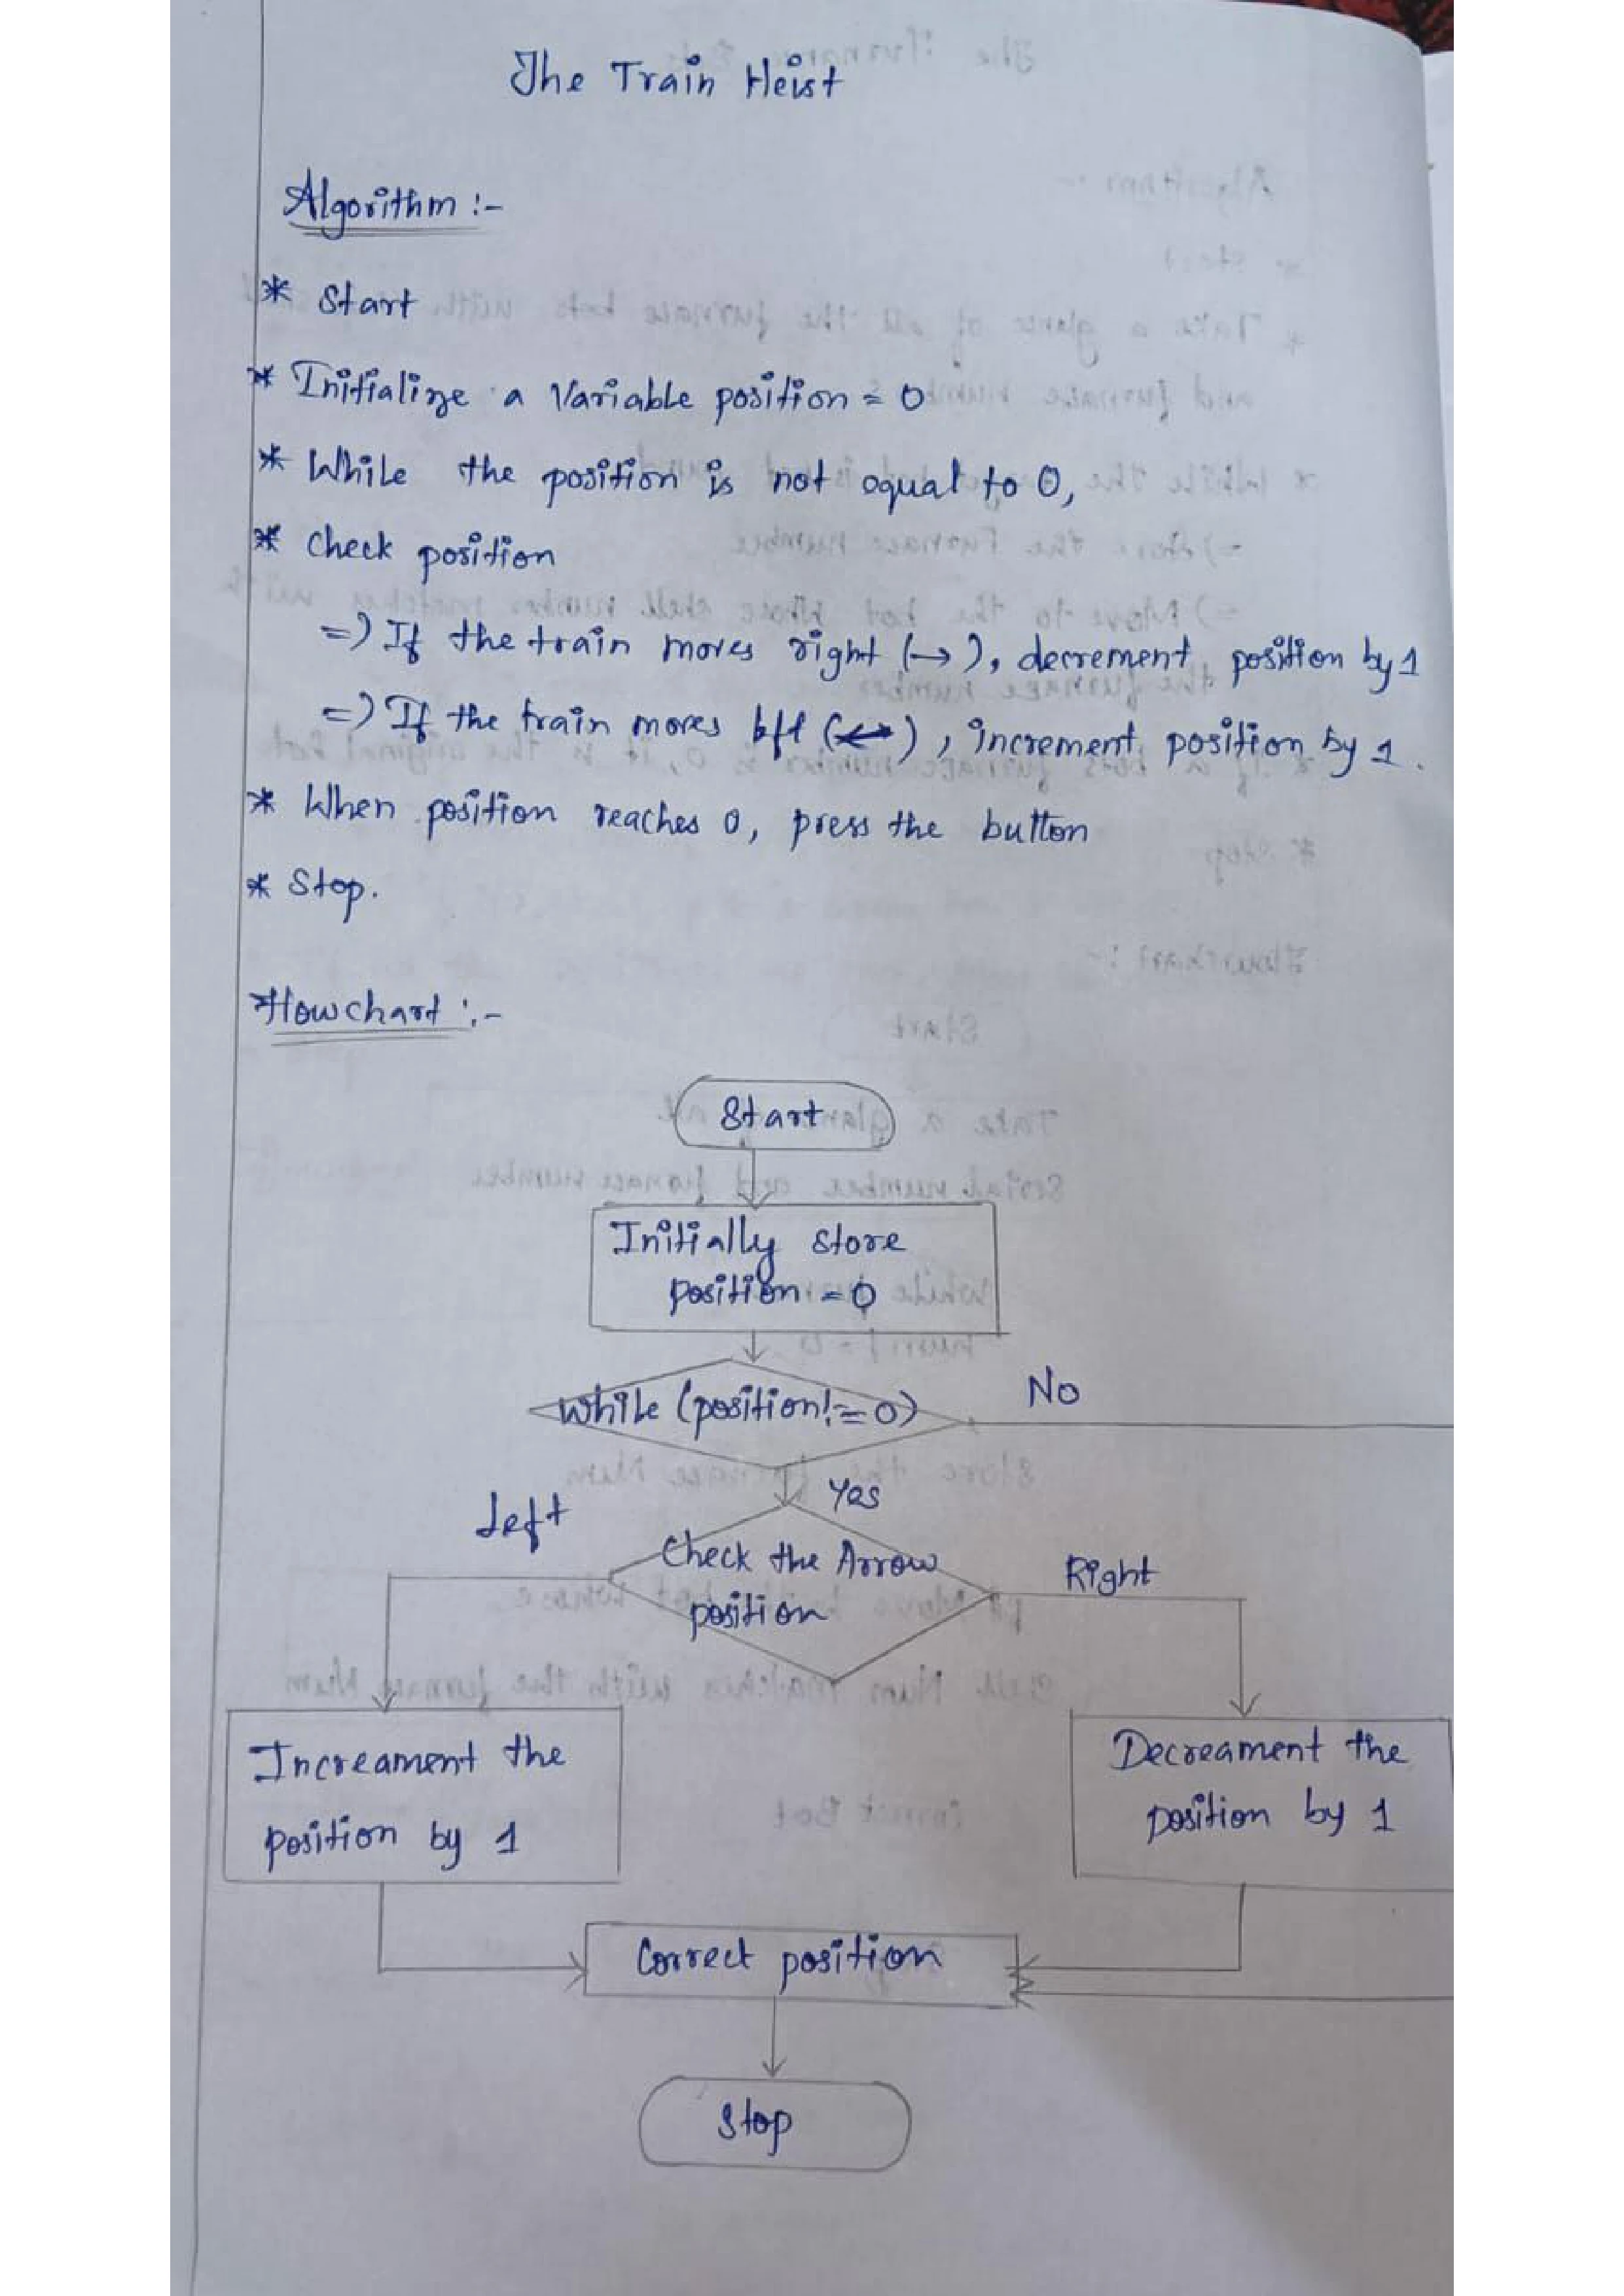 The Train Heist
Algorithm :-
* Start
* Initialize a Variable position = 0
* While the position is not equal to 0,
* Check position
=> If the train moves right (→), decrement position by 1
=> If the train moves left (←), increment position by 1.
* When position reaches 0, press the button
* Stop.
Flowchart :-
Start
Initially store
position = 0
While (position != 0)
No
Yes
Left
Check the Arrow
position
Right
Increament the
position by 1
Decreament the
position by 1
Correct position
Stop